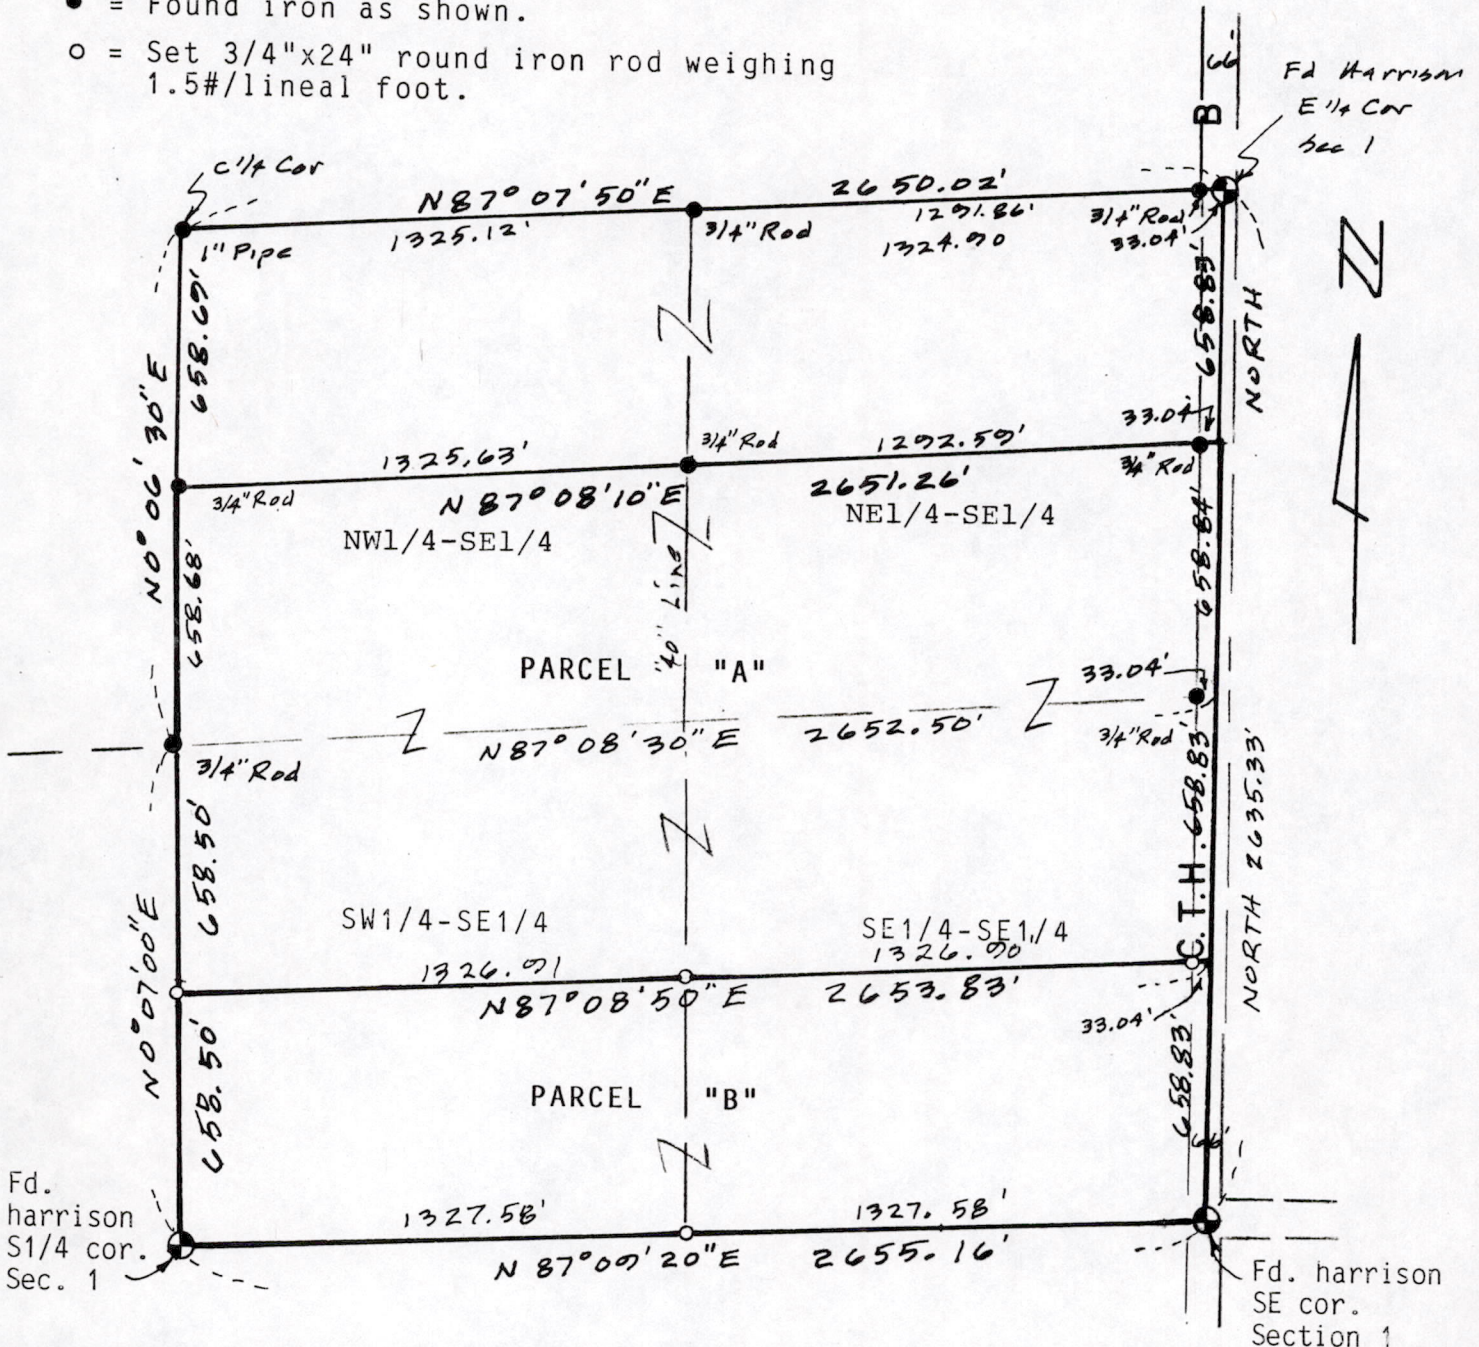 ● = Found iron as shown.
○ = Set 3/4"x24" round iron rod weighing
1.5#/lineal foot.
66'
B
Fd Harrison
E 1/4 Cor
Sec 1
C 1/4 Cor
N87° 07' 50" E
2650.02'
1325.12'
3/4" Rod
1291.86'
1324.90
3/4" Rod
33.04'
1" Pipe
658.69'
658.83'
NORTH
N
N0° 06' 30" E
1325.63'
3/4" Rod
1292.59'
33.04'
3/4" Rod
3/4" Rod
N 87° 08' 10" E
2651.26'
NW1/4-SE1/4
NE1/4-SE1/4
658.68'
"40" Line
658.84'
PARCEL "A"
33.04'
N87° 08' 30" E
2652.50'
3/4" Rod
3/4" Rod
658.50'
658.83'
NORTH 2635.33'
C. T. H.
N0° 07' 00" E
SW1/4-SE1/4
SE1/4-SE1/4
1326.91
1326.90
N87° 08' 50" E
2653.83'
33.04'
658.50'
658.83'
PARCEL "B"
66'
Fd.
harrison
S1/4 cor.
Sec. 1
1327.58'
1327.58'
N 87° 09' 20" E
2655.16'
Fd. harrison
SE cor.
Section 1